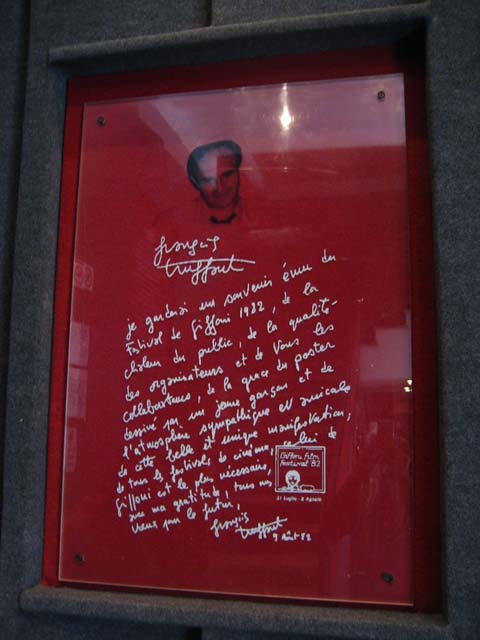 françois
truffaut
je garderai un souvenir ému du
Festival de Giffoni 1982, de la
chaleur du public, de la qualité
des organisateurs et de tous les
collaborateurs, de la grâce du poster
dessiné par un jeune garçon et de
l'atmosphère sympathique et amicale
de cette belle et unique manifestation;
de tous les festivals de cinéma, celui de
Giffoni est le plus nécessaire,
avec ma gratitude, tous mes
vœux pour le futur,
françois
truffaut
9 août 82
Giffoni film
festival '82
31 Luglio - 8 Agosto